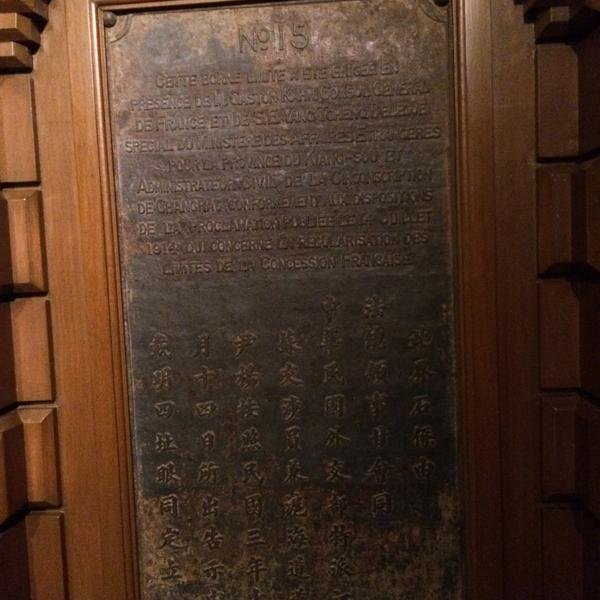 No 15
CETTE BORNE LIMITE A ÉTÉ ÉRIGÉE EN
PRÉSENCE DE M. GASTON KAHN, CONSUL GÉNÉRAL
DE FRANCE ET DE S.E. YANG TCHENG, DÉLÉGUÉ
SPÉCIAL DU MINISTÈRE DES AFFAIRES ÉTRANGÈRES
POUR LA PROVINCE DU KIANG-SOU ET
ADMINISTRATEUR CIVIL DE LA CIRCONSCRIPTION
DE CHANGHAI, CONFORMÉMENT AUX DISPOSITIONS
DE LA PROCLAMATION PUBLIÉE LE 14 JUILLET
1914 QUI CONCERNE LA RÉGULARISATION DES
LIMITES DE LA CONCESSION FRANÇAISE.
此界石係由
法總領事甘會同
中華民國外交部特派
蘇交涉員兼滬海道
尹楊按照民國三年
月十四日所出告示
載明四址眼同定立